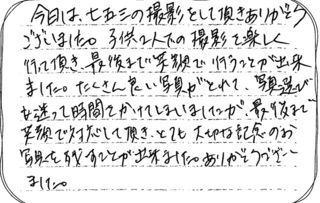 今日は、七五三の撮影をして頂きありがとう
ございました。子供2人の撮影を楽しく
行って頂き、最後まで笑顔で行うことが出来
ました。たくさん良い写真がとれて、写真選び
も迷って時間をかけてしまいましたが、最後まで
笑顔で対応して頂き、とても大切な記念のお
写真を残すことが出来ました。ありがとうござい
ました。